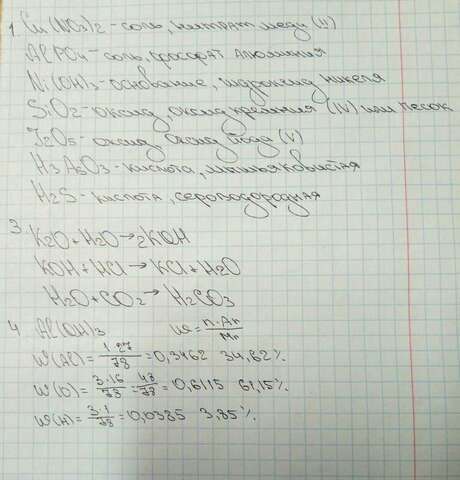 1. Cu(NO3)2 - соль, нитрат меди (II)
AlPO4 - соль, фосфат алюминия
Ni(OH)3 - основание, гидроксид никеля
SiO2 - оксид, оксид кремния (IV) или песок
I2O5 - оксид, оксид йода (V)
H3AsO3 - кислота, мышьяковистая
H2S - кислота, сероводородная
3. K2O + H2O → 2KOH
KOH + HCl → KCl + H2O
H2O + CO2 → H2CO3
4. Al(OH)3 ω = n·Ar/Mr
W(Al) = 1·27/78 = 0,3462 34,62%
W(O) = 3·16/78 = 48/78 = 0,6115 61,15%
W(H) = 3·1/78 = 0,0385 3,85%